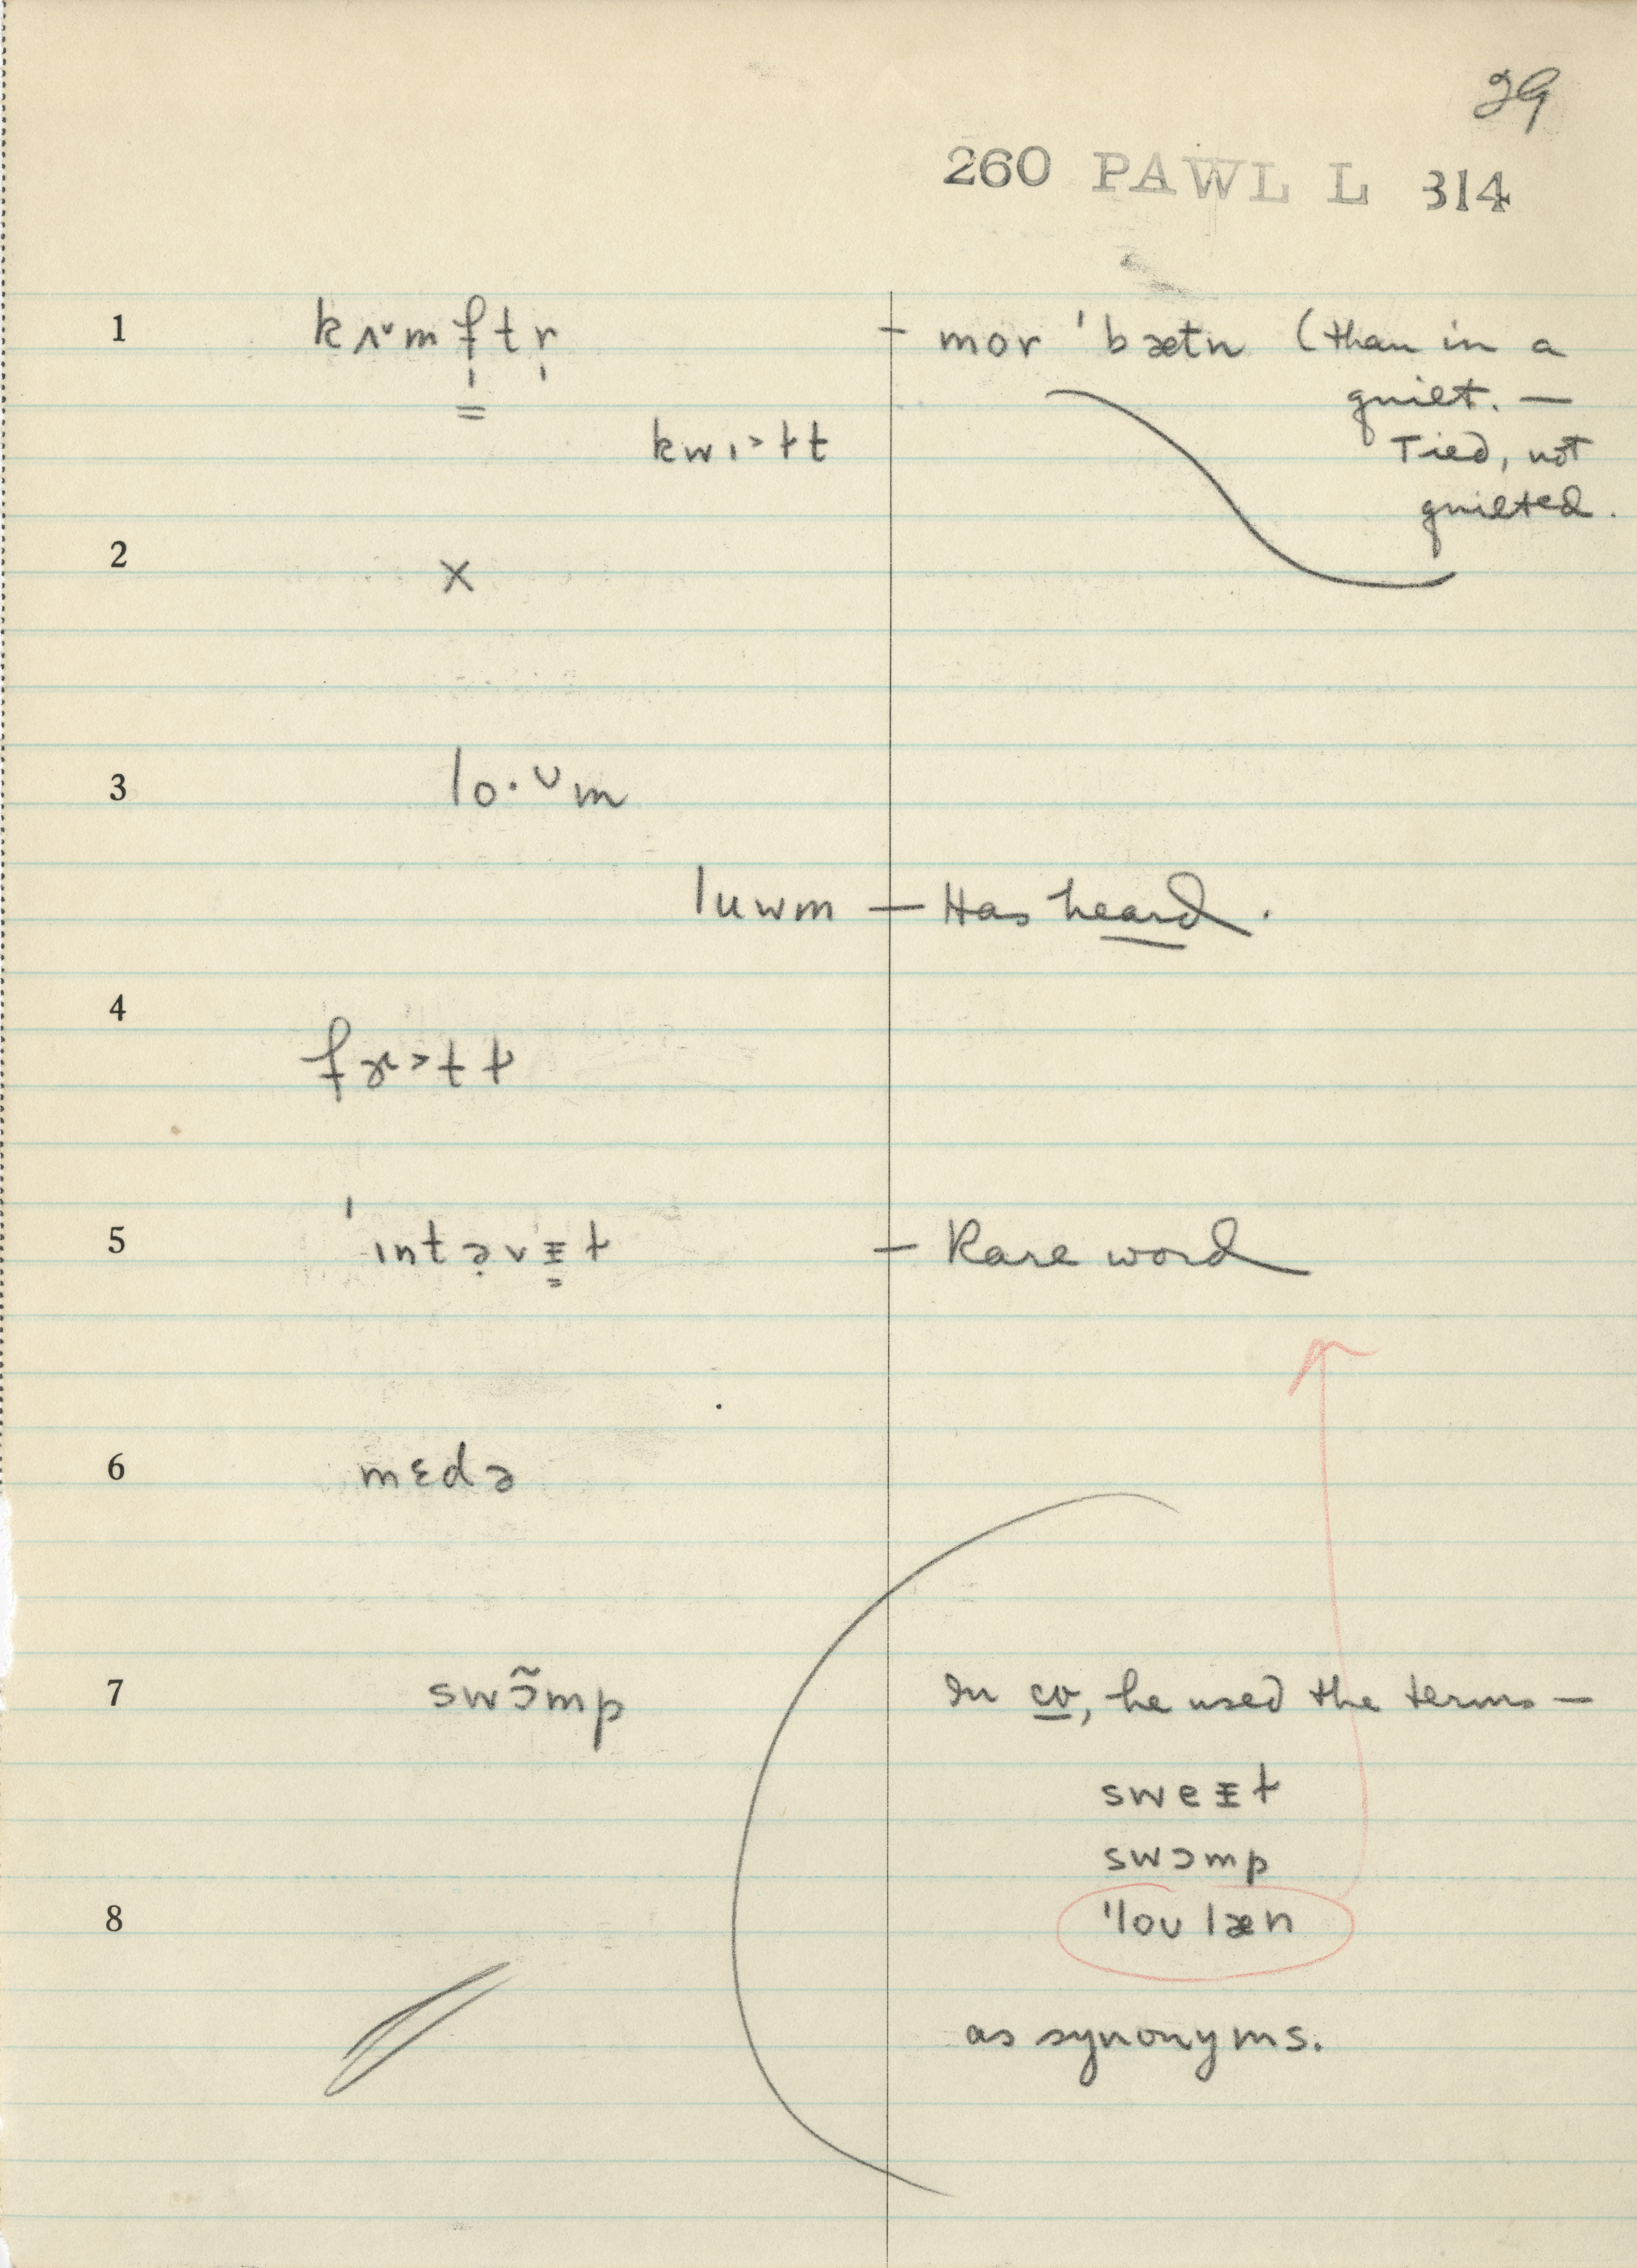 29
260 PAWL L 314
1 kʌ˅mf̩tr̩ – mor ˈbætn (than in a
quilt. —
kwɪ˃ɫt Tied, not
quilted.
2 x
3 lo·ᴗm
luwm — Has heard.
4
5 ˈɪntə̣vɪ̵ɫ — Rare word
6 mɛdə
7 swɔ̃mp In cv, he used the terms —
sweɪ̵ɫ
swɔmp
8 ˈlou læn
as synonyms.